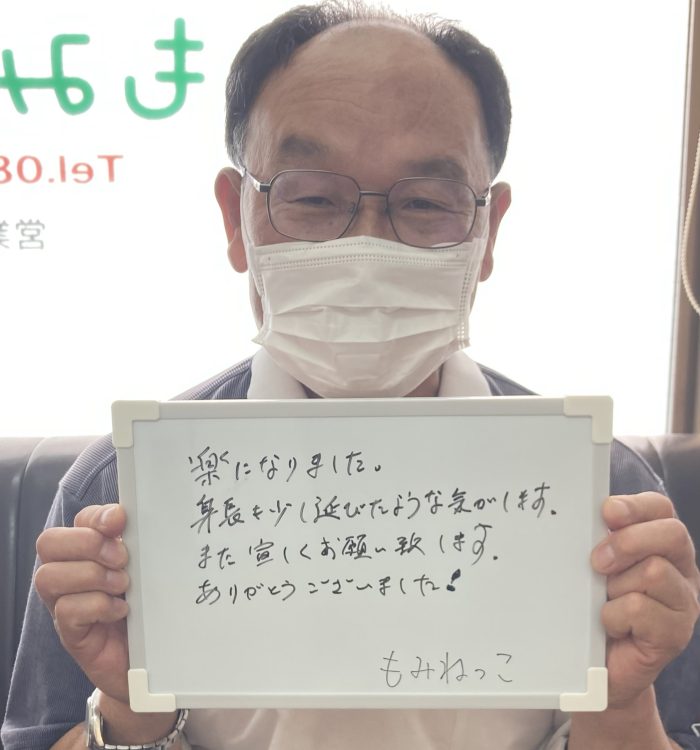 もみ
Tel.080
営業
楽になりました。
身長も少し延びたような気がします。
また宜しくお願い致します。
ありがとうございました!
もみねっこ